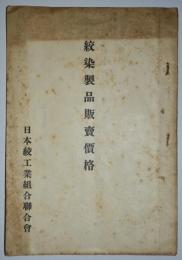 絞染製品販賣價格
日本絞工業組合聯合會